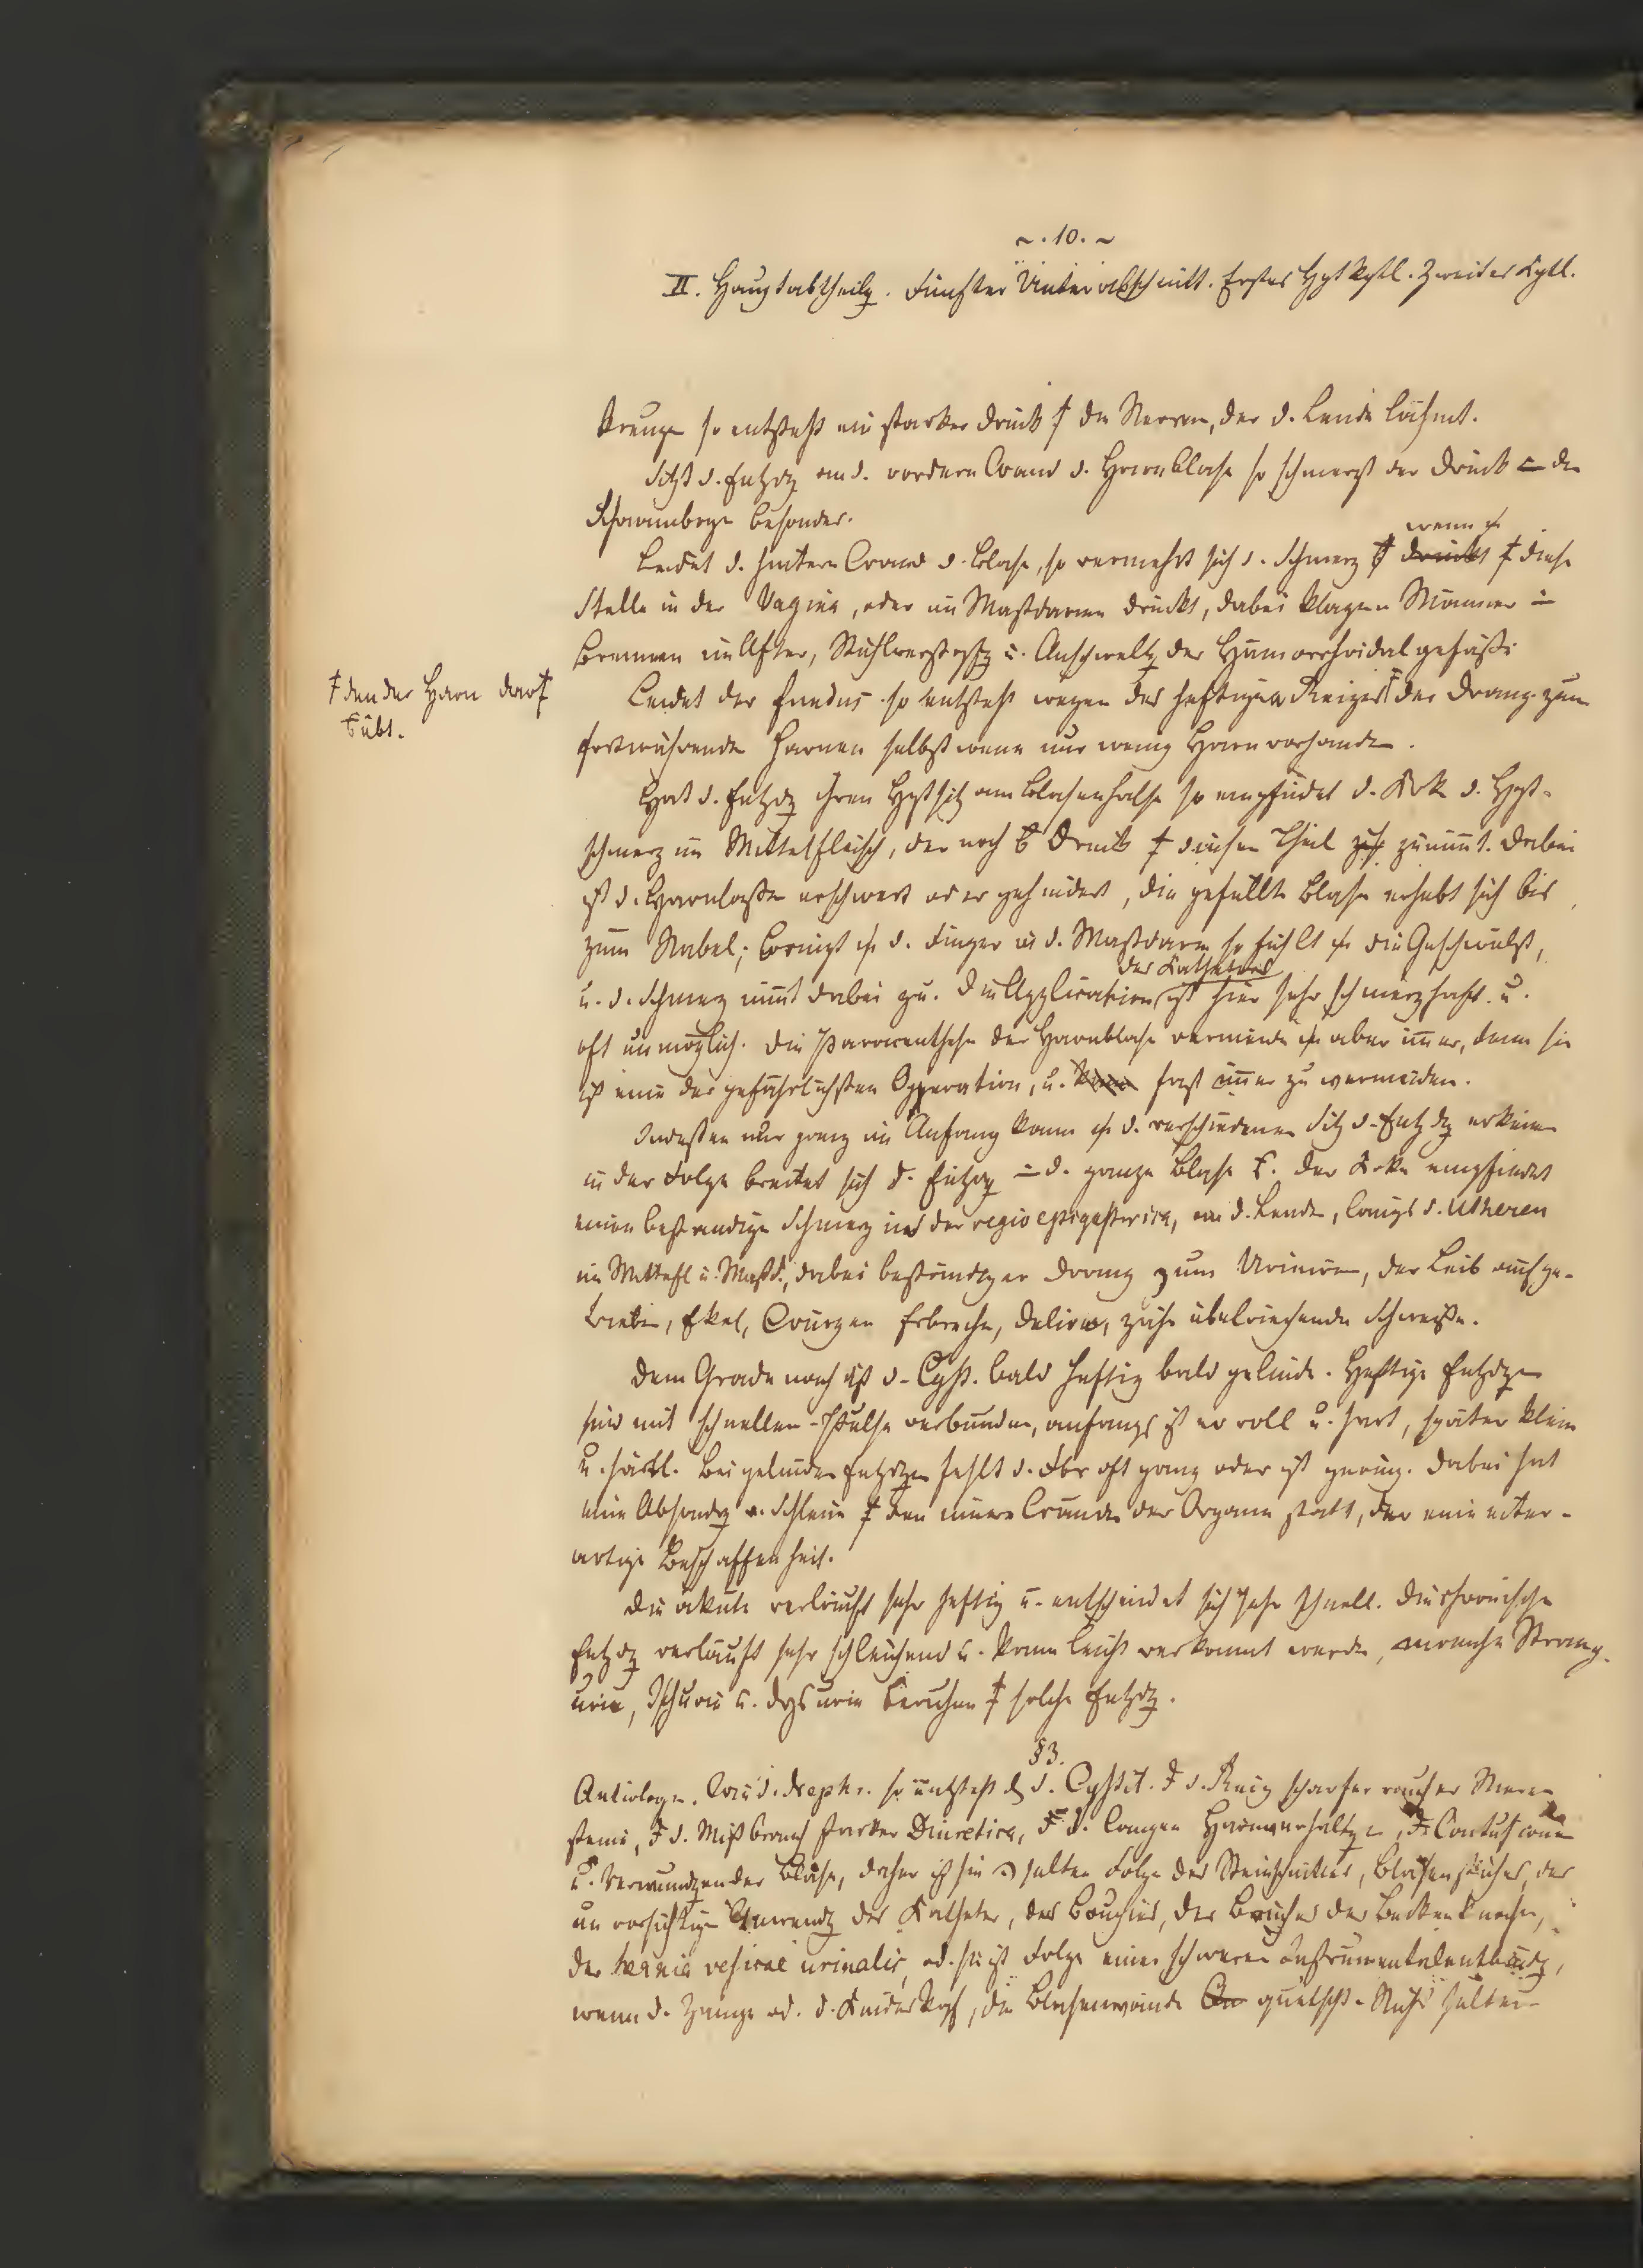 ~. 10. ~
II. Hauptabtheilg. Fünfter Unterabschnitt. Erstes Hptkptl. Zweites Kptl.
Kreuze so entsteht ein starker Druck ‡ die Nerven, der d. Lende lähmt.
Sitzt d. Entzdg an d. vordern Wand d. Harnblase so schmerzt der Druck = den
Schaambogen besonders.
wenn
Leidet d. hintere Wand d. Blase, so vermehrt sich d. Schmerz druckt ‡ diese
Stelle in der Vagina, oder im Mastdarme druckt, dabei klagen Männer
Brennen im After, Stuhlverstopfg u. Anschwellg der Hämorrhoidalgefäße
‡ den der Harn darf
Leidet der Fundus so entsteht wegen des heftigen Reizes ‡ der Drang zum
übt.
fortwährende Harnen selbst wenn nur wenig Harn vorhanden.
Hat d. Entzdg ihren Hptsitz am Blasenhalse so empfindet d. Krke d. Hpt-
schmerz im Mittelfleisch, der noch Druck ‡ diesen Theil zunimmt. Dabei
ist d. Harnlassen erschwert oder gehindert, die gefüllte Blase erhebt sich bis
zum Nabel; bringt d. Finger in d. Mastdarm so fühlt die Geschwulst,
des Katheters
u. d. Schmerz nimmt dabei zu. Die Application ist hier sehr schmerzhaft u.
oft unmöglich. Die Paracenthese der Harnblase vermeide aber immer, denn sie
ist eine der gefährlichsten Opperation, u. fast immer zu vermeiden.
Indessen nur ganz im Anfang kann d. verschiedenen Sitz d. Entzdg erkennen
in der Folge breitet sich d. Entzdg = d. ganze Blase. Der Krke empfindet
einen beständige Schmerz in der regio epigastrica, an d. Lende, längs d. Utheren
im Mittelfl u. Mastd., dabei beständiger Drang zum Uriniren, der Leib aufge-
trieben, Ekel, Würgen Erbrechen, Delirien, zähe übelriechende Schweiße.
Dem Grade nach ist d. Cyst. bald heftig bald gelinde. Heftige Entzdgen
sind mit schnellen Pulse verbunden, anfangs ist er voll u. hart, später klein
u. härtl. Bei gelinden Entzdgen fehlt d. Fbr oft ganz oder ist gering. Dabei hat
eine Absondrg v. Schleim ‡ den innere Wänden der Organe statt, der eine eiter-
artige Beschaffenheit.
Die akute verläuft sehr heftig u. entscheidet sich sehr schnell. Die chronische
Entzdg verläuft sehr schleichend u. kann leicht verkannt werden, manche Strang-
urie, Ischurie u. Dysurie beruhen ‡ solche Entzdg.
§3.
Aetiologie. Wie d. Nephr. so entsteht d. Cystit. d. Reiz scharfer rauher Nieren
steine, d. Mißbrauch starker Diuretica, d. langen Harnverhaltgen, Contusionen
u. Verwundgen der Blase, daher ist sie selten Folge des Steinschnittes, Blasenstiches, der
un vorsichtigen Anwendg der Katheter, des Bougies, des Bruches der Beckenknochen,
der hernia vesicae urinalis, od. sie ist Folge einer schweren Instrumentalentbindg,
wenn d. Zange od. d. Kinderkopf, die Blasenwände quetscht. Nicht selten